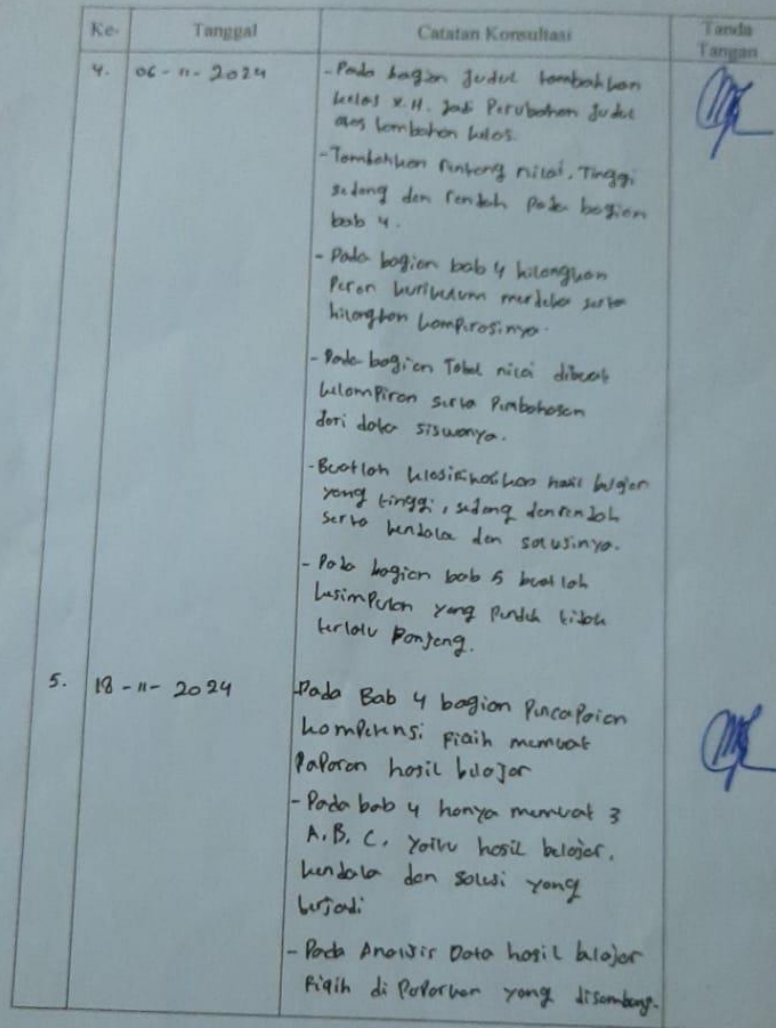 Ke- Tanggal Catatan Konsultasi Tanda Tangan
4. 06-11-2024 - Pada bagian judul tambahkan
kelas X.H. jadi Perubahan judul
atas tambahan kelas.
- Tambahkan rentang nilai, Tinggi
sedang dan rendah pada bagian
bab 4.
- Pada bagian bab 4 hilangkan
Peran kurikulum merdeka serta
hilangkan komparasinya.
- Pada bagian Tabel nilai dibuat
kelampiran serta Pembahasan
dari data siswanya.
- Buatlah klasifikasikan hasil belajar
yang tinggi, sedang dan rendah
serta kendala dan solusinya.
- Pada bagian bab 5 buatlah
kesimpulan yang pendek tidak
terlalu Panjang.
5. 18-11-2024 Pada Bab 4 bagian Pencapaian
kompetensi Fiqih memuat
Paparan hasil belajar
- Pada bab 4 hanya memuat 3
A, B, C, yaitu hasil belajar,
kendala dan solusi yang
terjadi
- Pada Analisis Data hasil belajar
Fiqih di Paparkan yang